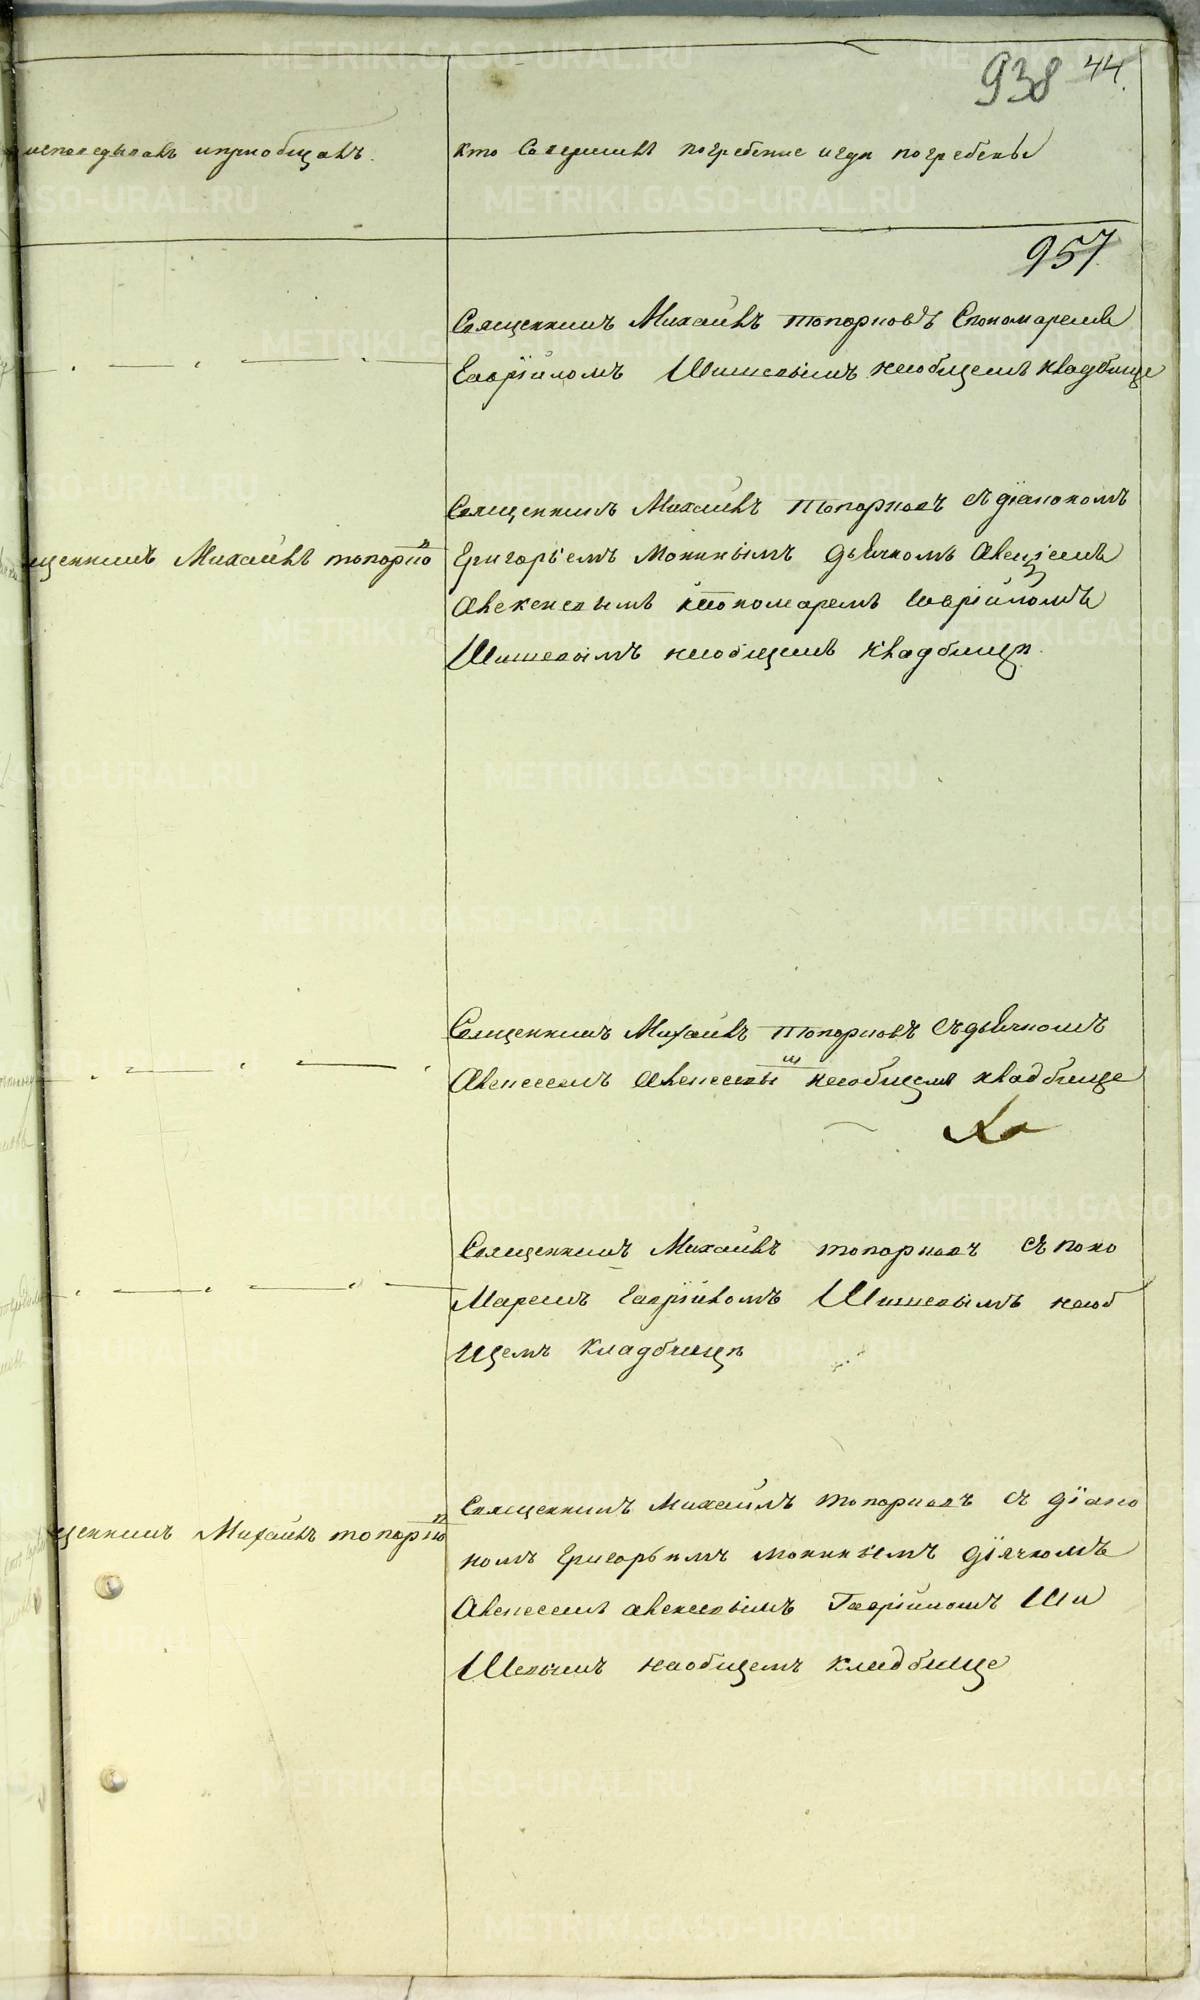 938 44.
исповедывалъ и приобщалъ.
кто Совершилъ погребение и гдѣ погребены
957
Священникъ Михаилъ топорковъ Спономаремъ
Гаврїиломъ Шишевымъ наобщемъ кладбище
Священникъ Михаилъ топорковъ съ дїакономъ
щенникъ Михаилъ топорко
в
Григорьемъ Мокинымъ дьячкомъ Алексїемъ
Алексеевымъ пономаремъ Гаврїиломъ
Шишевымъ наобщемъ кладбищѣ.
Священникъ Михаилъ топорковъ съ дьячкомъ
Алексеемъ Алексеевы
м
наобщемъ кладбище
Священникъ Михаилъ топорковъ съ поно
Маремъ Гаврїиломъ Шишевымъ наоб
щемъ кладбищѣ
Священникъ Михаилъ топорковъ съ дїако
щенникъ Михаилъ топорко
в
номъ Григорьимъ мокинымъ дїячкомъ
Алексеемъ алексеевымъ Гаврїиломъ Ши
Шевымъ наобщемъ кладбище
METRIKI.GASO-URAL.RU